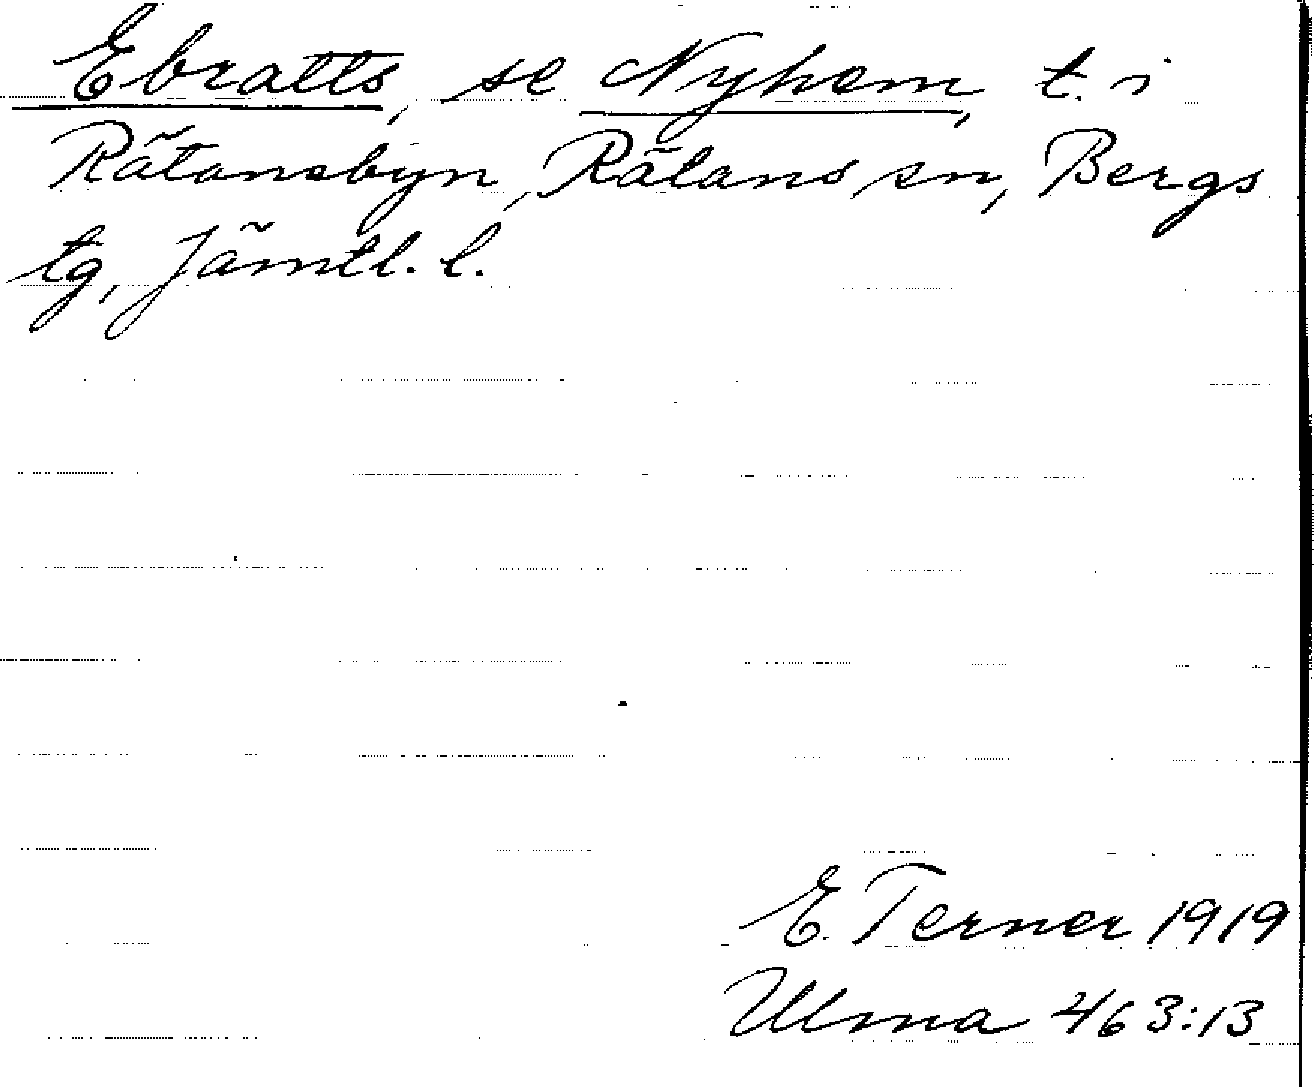 Ebratts, se Nyhem, t. i
Rätansbyn, Rätans sn, Bergs
tg, Jämtl. l.
E. Terner 1919
Ulma 463:13